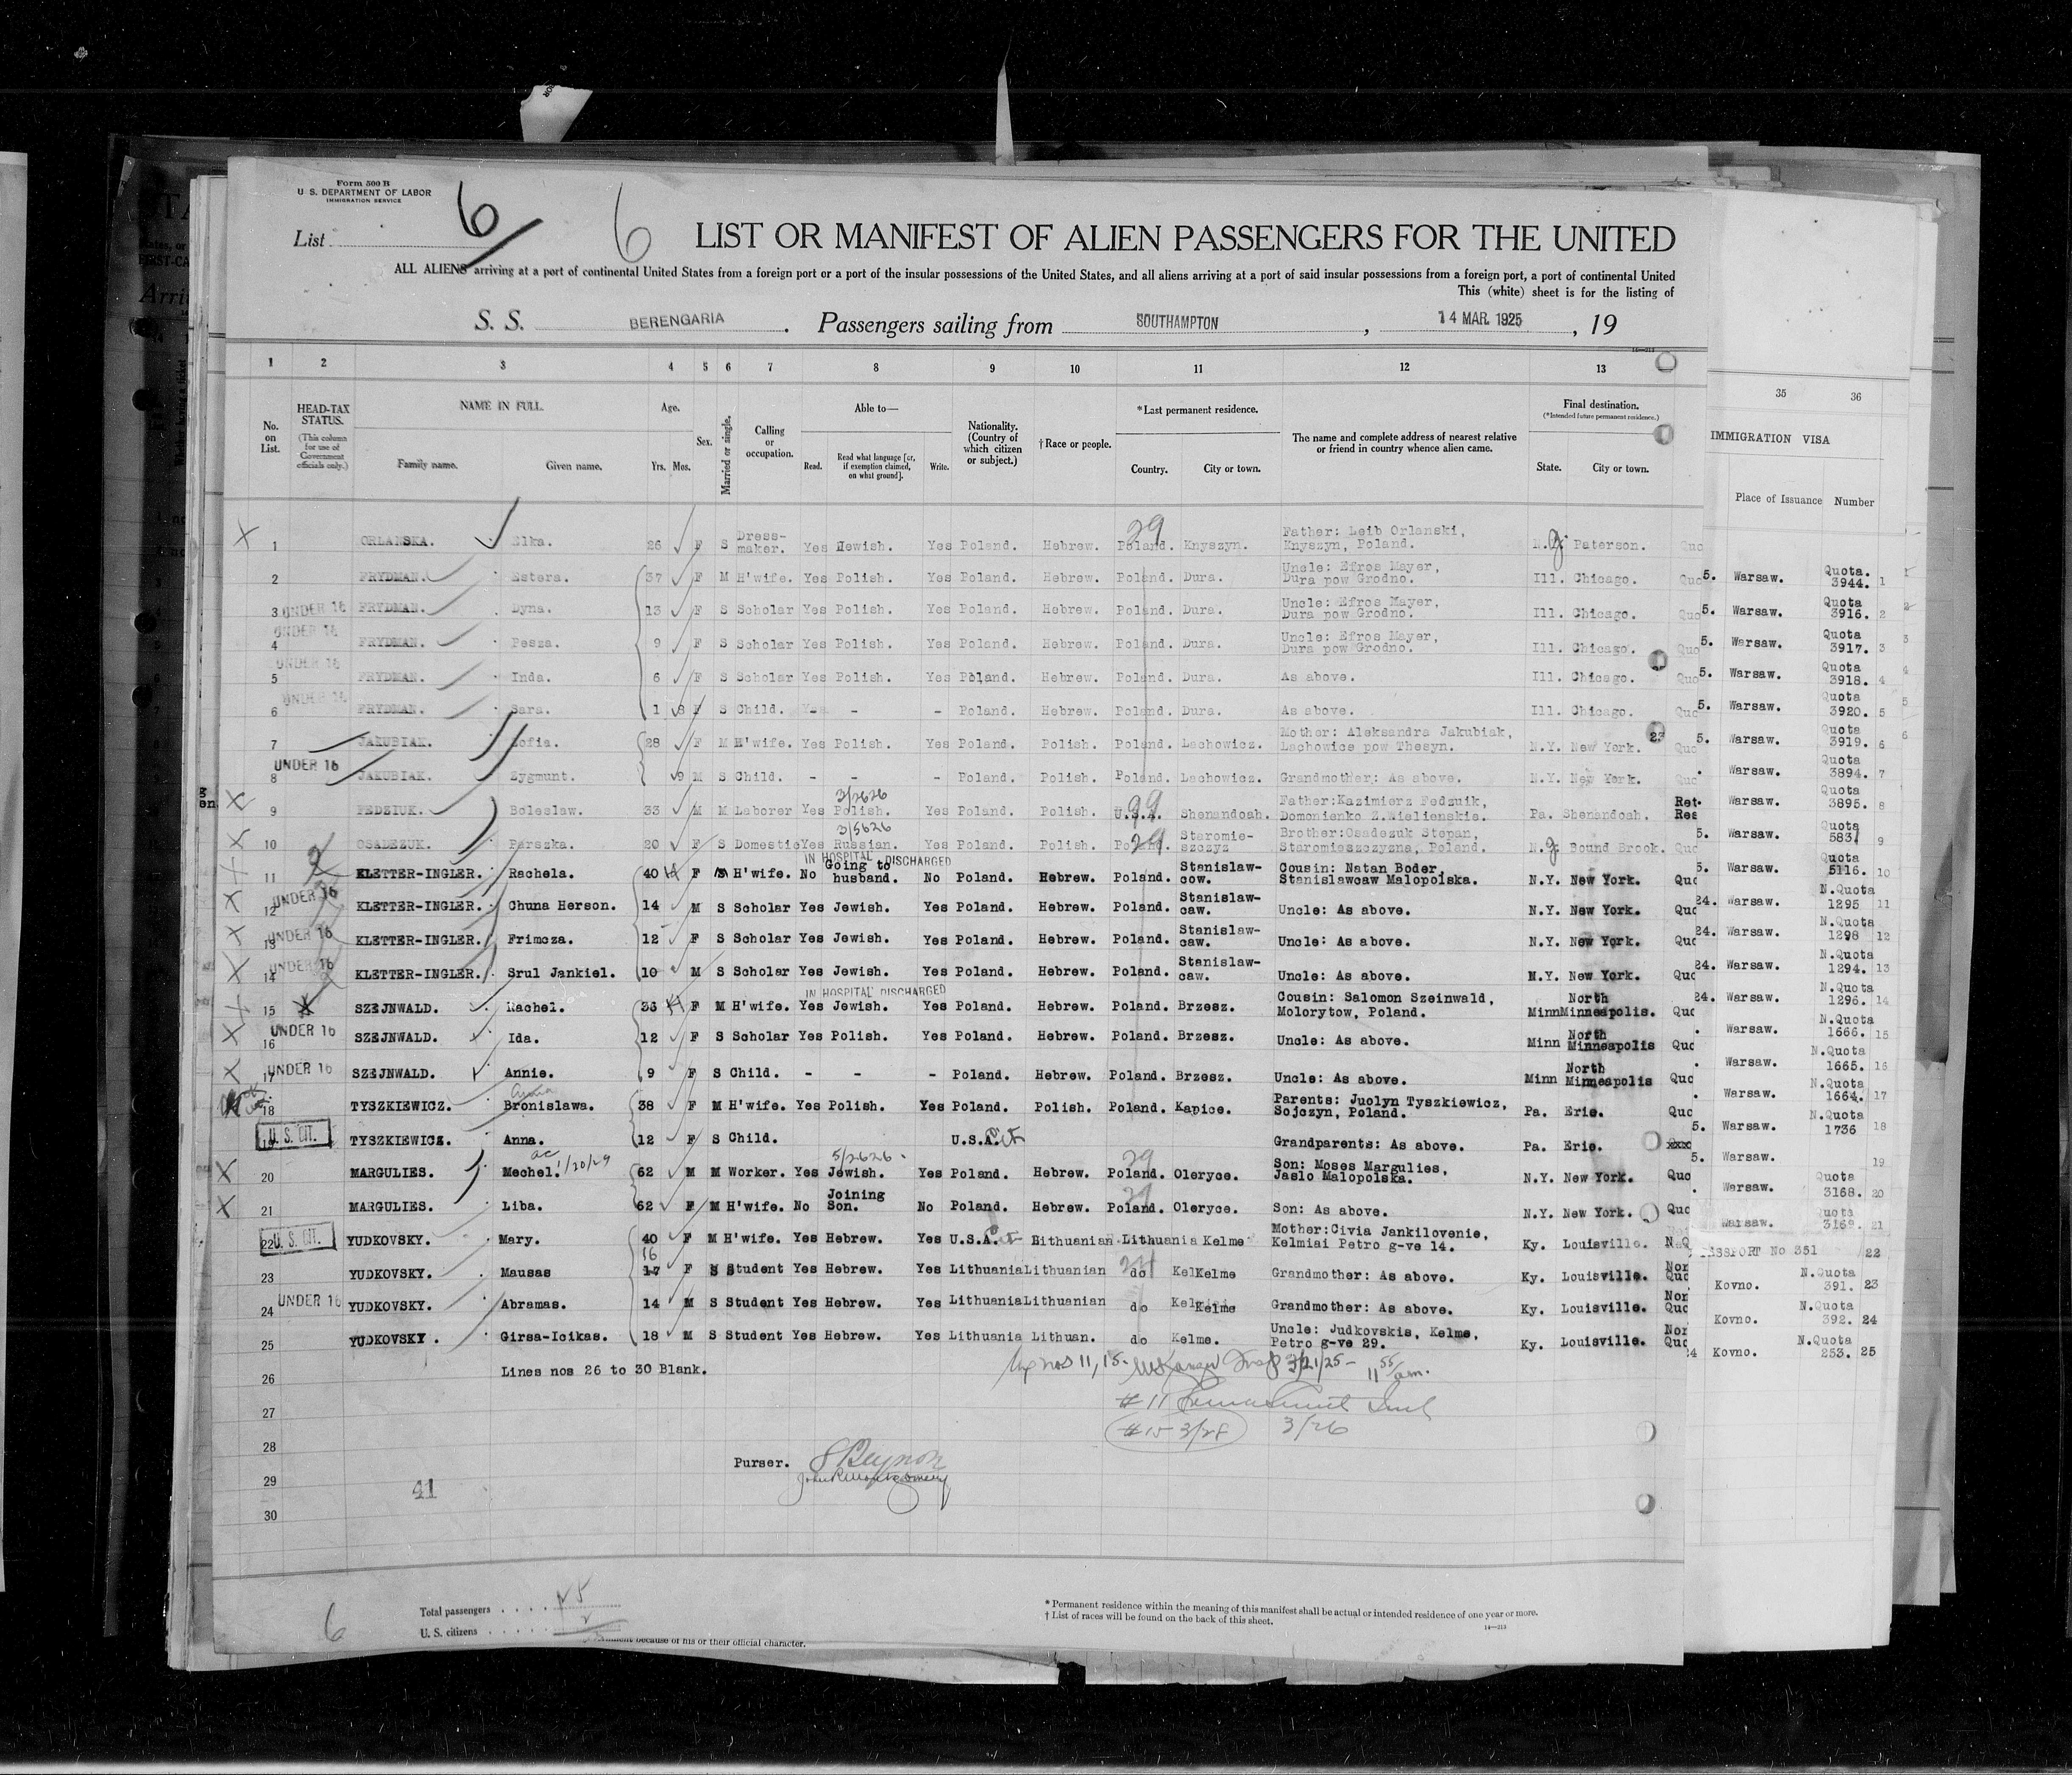 Form 500 B
U. S. DEPARTMENT OF LABOR
IMMIGRATION SERVICE
List 6 6
LIST OR MANIFEST OF ALIEN PASSENGERS FOR THE UNITED
ALL ALIENS arriving at a port of continental United States from a foreign port or a port of the insular possessions of the United States, and all aliens arriving at a port of said insular possessions from a foreign port, a port of continental United
This (white) sheet is for the listing of
S. S. BERENGARIA. Passengers sailing from SOUTHAMPTON, 14 MAR. 1925, 19
1 2 3 4 5 6 7 8 9 10 11 12 13 35 36
No. on List.
HEAD-TAX STATUS.
(This column for use of Government officials only.)
NAME IN FULL.
Family name. Given name.
Age.
Yrs. Mos.
Sex.
Married or single.
Calling or occupation.
Able to—
Read. Read what language [or, if exemption claimed, on what ground]. Write.
Nationality. (Country of which citizen or subject.)
†Race or people.
*Last permanent residence.
Country. City or town.
The name and complete address of nearest relative or friend in country whence alien came.
Final destination.
(*Intended future permanent residence.)
State. City or town.
IMMIGRATION VISA
Place of Issuance Number
1 ORLANSKA. Elka. 26 F S Dress-maker. Yes Jewish. Yes Poland. Hebrew. Poland. 29 Knyszyn. Father: Leib Orlanski, Knyszyn, Poland. N.J. Paterson. Quo
2 FRYDMAN. Estera. 37 F M H'wife. Yes Polish. Yes Poland. Hebrew. Poland. Dura. Uncle: Efros Mayer, Dura pow Grodno. Ill. Chicago. Quo
3 UNDER 16 FRYDMAN. Dyna. 13 F S Scholar Yes Polish. Yes Poland. Hebrew. Poland. Dura. Uncle: Efros Mayer, Dura pow Grodno. Ill. Chicago. Quo
4 UNDER 16 FRYDMAN. Pesza. 9 F S Scholar Yes Polish. Yes Poland. Hebrew. Poland. Dura. Uncle: Efros Mayer, Dura pow Grodno. Ill. Chicago. Quo
5 UNDER 16 FRYDMAN. Inda. 6 F S Scholar Yes Polish. Yes Poland. Hebrew. Poland. Dura. As above. Ill. Chicago. Quo
6 UNDER 16 FRYDMAN. Sara. 1 8 F S Child. - - - Poland. Hebrew. Poland. Dura. As above. Ill. Chicago. Quo
7 JAKUBIAK. Zofia. 28 F M H'wife. Yes Polish. Yes Poland. Polish. Poland. Lachowicz. Mother: Aleksandra Jakubiak, Lachowice pow Thesyn. N.Y. New York. Quo
8 UNDER 16 JAKUBIAK. Zygmunt. 9 M S Child. - - - Poland. Polish. Poland. Lachowicz. Grandmother: As above. N.Y. New York. Quo
9 FEDZIUK. Boleslaw. 33 M M Laborer Yes Polish. 3/2626 Yes Poland. Polish. U.S.A. 99 Shenandoah. Father:Kazimierz Fedzuik, Domonienko Z.Wielienskie. Pa. Shenandoah. Ret. Res
10 OSADEZUK. Parszka. 20 F S Domestic Yes Russian. 3/5626 Yes Poland. Polish. Poland. 29 Staromie-szczyz Brother:Osadezuk Stepan, Staromieszczyzna, Poland. N.J. Bound Brook. Quo
11 KLETTER-INGLER. Rachela. 40 F H'wife. No IN HOSPITAL DISCHARGED Going to husband. No Poland. Hebrew. Poland. Stanislaw-cow. Cousin: Natan Boder, Stanislawcaw Malopolska. N.Y. New York. Quo
12 UNDER 16 KLETTER-INGLER. Chuna Herson. 14 M S Scholar Yes Jewish. Yes Poland. Hebrew. Poland. Stanislaw-caw. Uncle: As above. N.Y. New York. Quo
13 UNDER 16 KLETTER-INGLER. Frimcza. 12 F S Scholar Yes Jewish. Yes Poland. Hebrew. Poland. Stanislaw-caw. Uncle: As above. N.Y. New York. Quo
14 UNDER 16 KLETTER-INGLER. Srul Jankiel. 10 M S Scholar Yes Jewish. Yes Poland. Hebrew. Poland. Stanislaw-caw. Uncle: As above. N.Y. New York. Quo
15 SZEJNWALD. Rachel. 36 F M H'wife. Yes IN HOSPITAL DISCHARGED Jewish. Yes Poland. Hebrew. Poland. Brzesz. Cousin: Salomon Szeinwald, Molorytow, Poland. Minn North Minneapolis. Quo
16 UNDER 16 SZEJNWALD. Ida. 12 F S Scholar Yes Polish. Yes Poland. Hebrew. Poland. Brzesz. Uncle: As above. Minn North Minneapolis Quo
17 UNDER 16 SZEJNWALD. Annie. 9 F S Child. - - - Poland. Hebrew. Poland. Brzesz. Uncle: As above. Minn North Minneapolis Quo
18 TYSZKIEWICZ. Bronislawa. 38 F M H'wife. Yes Polish. Yes Poland. Polish. Poland. Kapice. Parents: Juolyn Tyszkiewicz, Sojczyn, Poland. Pa. Erie. Quo
19 U. S. CIT. TYSZKIEWICZ. Anna. 12 F S Child. U.S.A. Cit Grandparents: As above. Pa. Erie. xxx
20 MARGULIES. Mechel. 1/20/29 62 M M Worker. Yes 5/2626 Jewish. Yes Poland. Hebrew. 29 Poland. Oleryce. Son: Moses Margulies, Jaslo Malopolska. N.Y. New York. Quo
21 MARGULIES. Liba. 62 F M H'wife. No Joining Son. No Poland. Hebrew. 29 Poland. Oleryce. Son: As above. N.Y. New York. Quo
22 U. S. CIT. YUDKOVSKY. Mary. 40 F M H'wife. Yes Hebrew. Yes U.S.A. Cit Lithuanian Lithuania Kelme Mother:Civia Jankilovenie, Kelmiai Petro g-ve 14. Ky. Louisville. N.Q
23 YUDKOVSKY. Mausas 16 17 F S Student Yes Hebrew. Yes Lithuania Lithuanian do 24 Kelme Grandmother: As above. Ky. Louisville. Non Quo
24 UNDER 16 YUDKOVSKY. Abramas. 14 M S Student Yes Hebrew. Yes Lithuania Lithuanian do Kelme Grandmother: As above. Ky. Louisville. Non Quo
25 YUDKOVSKY. Girsa-Icikas. 18 M S Student Yes Hebrew. Yes Lithuania Lithuan. do Kelme. Uncle: Judkovskis, Kelme, Petro g-ve 29. Ky. Louisville. Non Quo
26 Lines nos 26 to 30 Blank.
nos 11, 15. 3/21/25 - 11 55 am.
27 #11
#15 3/28 3/26
28
Purser.
29 41
30
5. Warsaw. Quota. 3944. 1
5. Warsaw. Quota 3916. 2
5. Warsaw. Quota 3917. 3
5. Warsaw. Quota 3918. 4
5. Warsaw. Quota 3920. 5
5. Warsaw. Quota 3919. 6
Warsaw. Quota 3894. 7
Warsaw. Quota 3895. 8
5. Warsaw. Quota 5831 9
5. Warsaw. Quota 5116. 10
24. Warsaw. N.Quota 1295 11
24. Warsaw. N.Quota 1298 12
24. Warsaw. N.Quota 1294. 13
24. Warsaw. N.Quota 1296. 14
Warsaw. N.Quota 1666. 15
Warsaw. N.Quota 1665. 16
Warsaw. N.Quota 1664. 17
5. Warsaw. N.Quota 1736 18
5. Warsaw. 19
Warsaw. Quota 3168. 20
Warsaw. Quota 3169. 21
PASSPORT No 351 22
Kovno. N.Quota 391. 23
Kovno. N.Quota 392. 24
24 Kovno. N.Quota 253. 25
6
Total passengers . . . . 25
U. S. citizens . . . . . 2
because of his or their official character.
* Permanent residence within the meaning of this manifest shall be actual or intended residence of one year or more.
† List of races will be found on the back of this sheet.
14—313